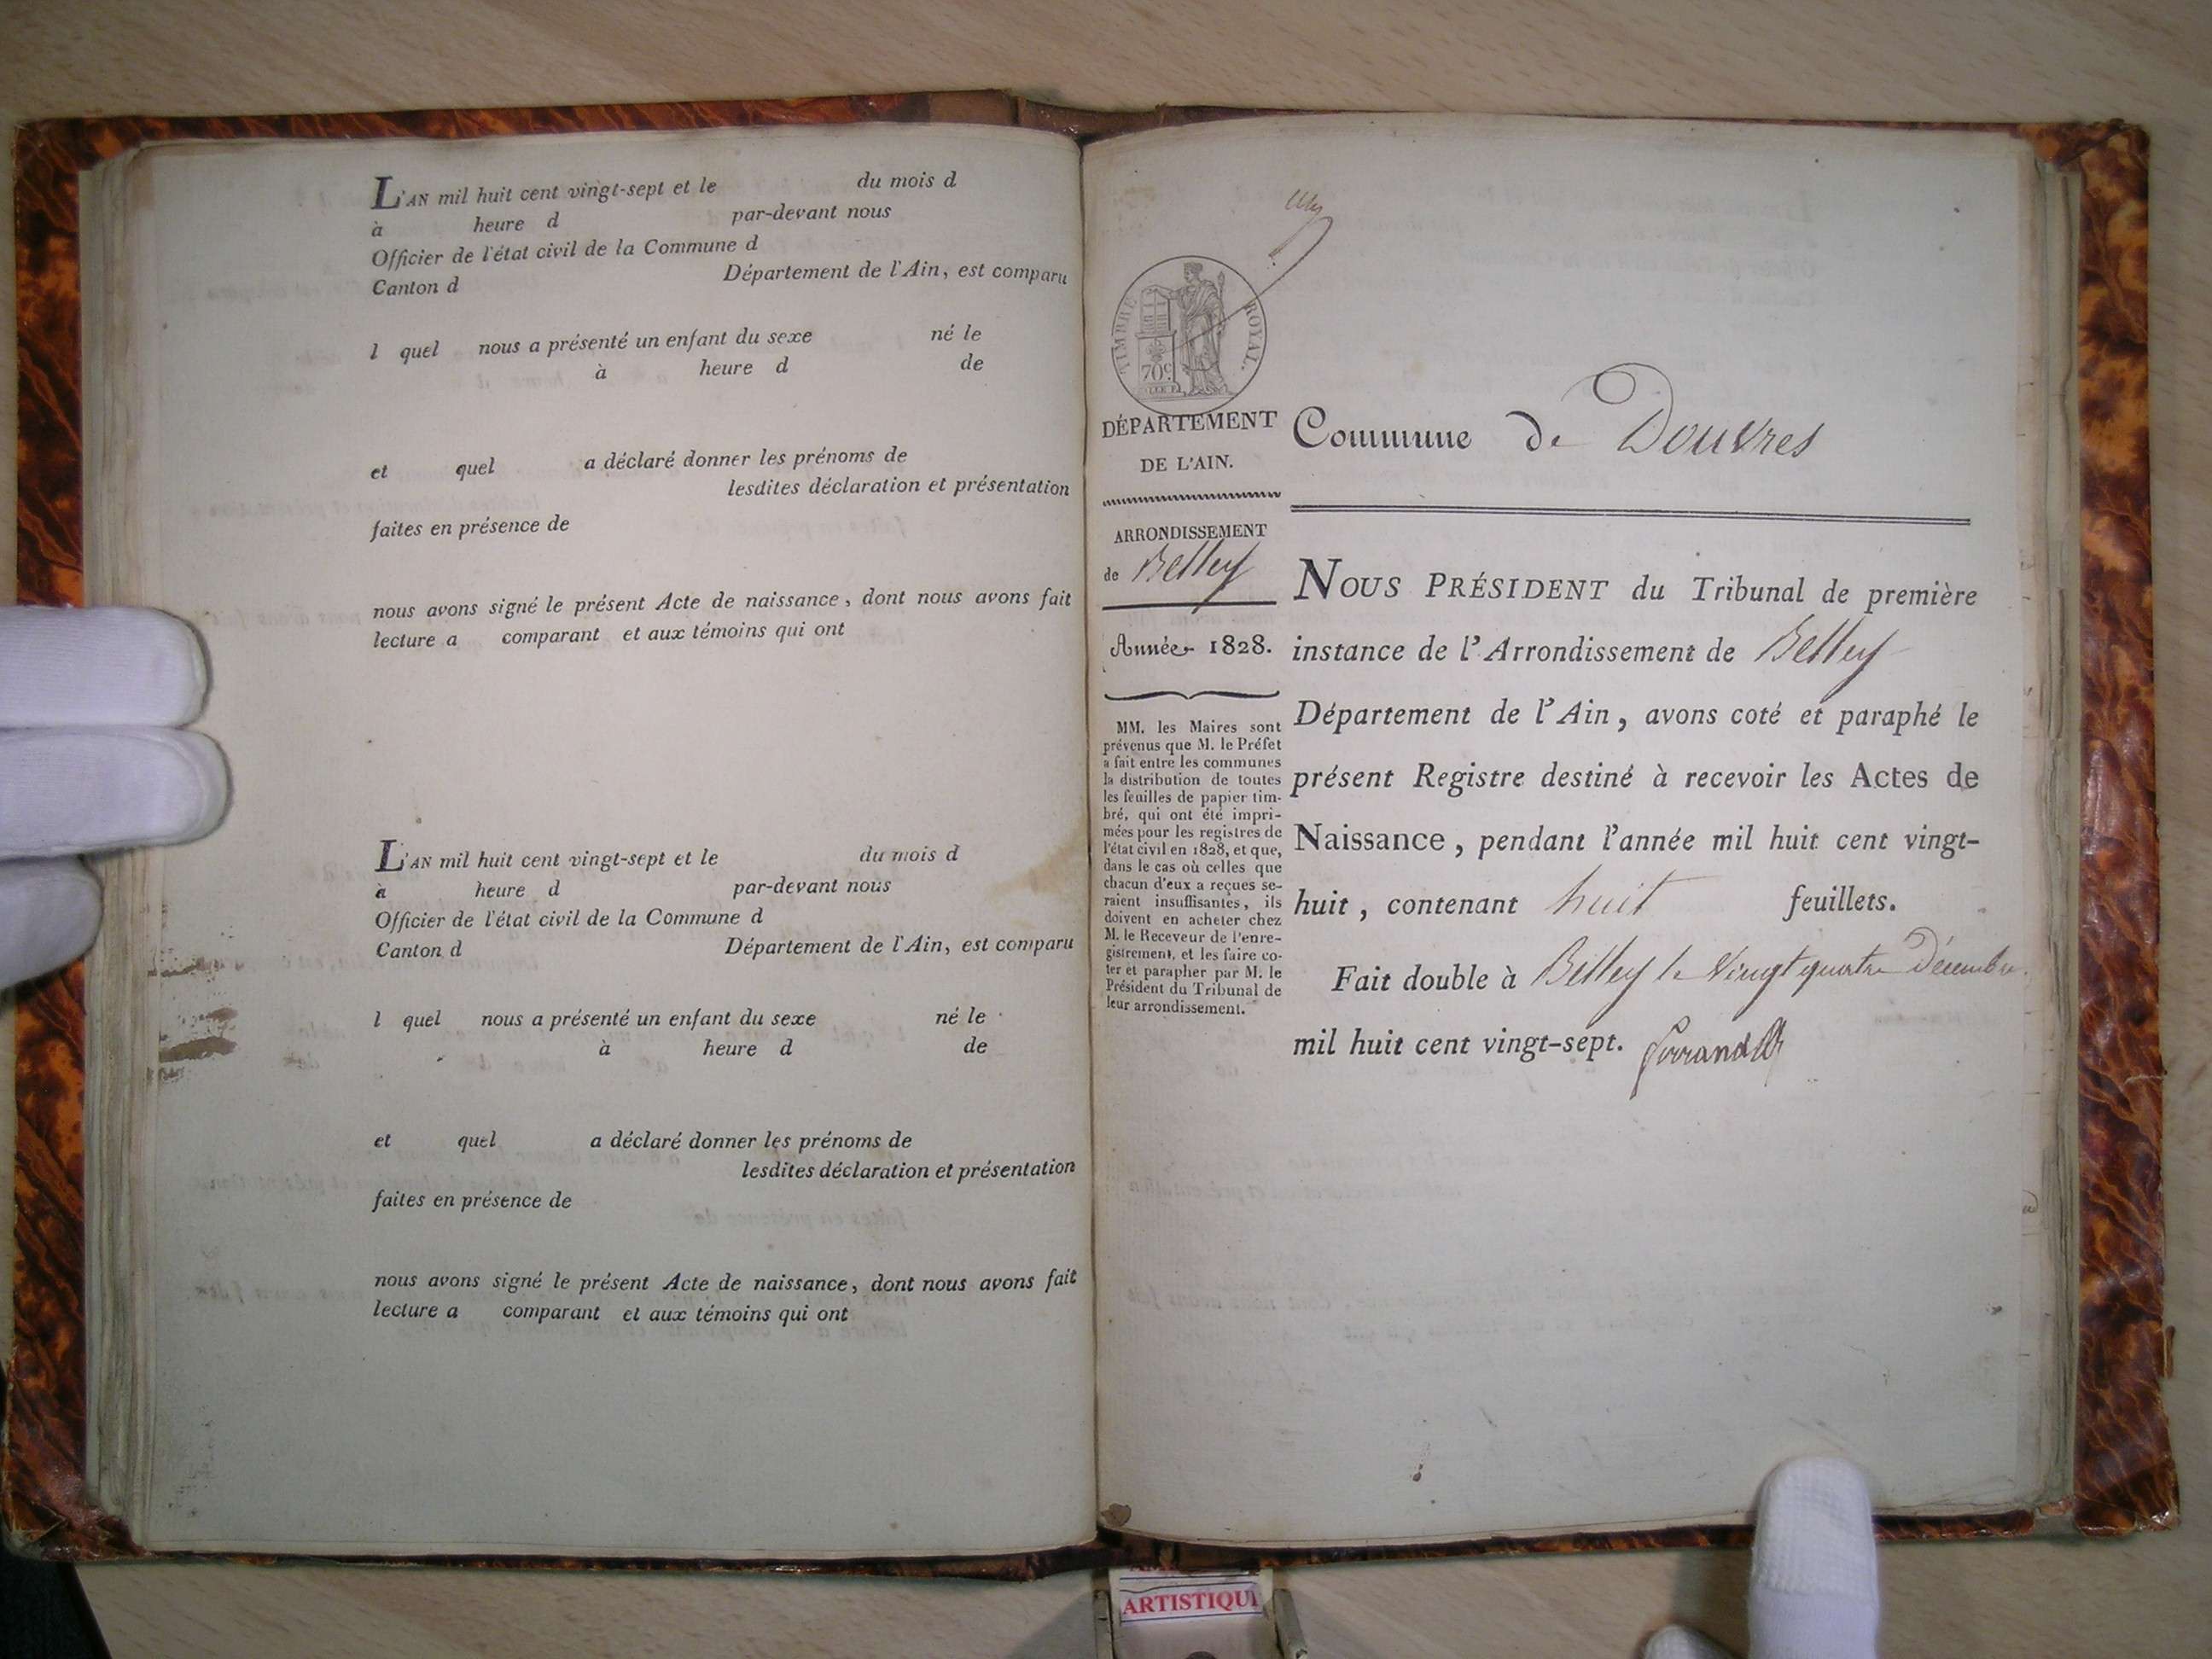 L'AN mil huit cent vingt-sept et le du mois d
à heure d par-devant nous
Officier de l'état civil de la Commune d
Canton d Département de l'Ain, est comparu
l quel nous a présenté un enfant du sexe né le
à heure d de
et quel a déclaré donner les prénoms de
lesdites déclaration et présentation
faites en présence de
nous avons signé le présent Acte de naissance, dont nous avons fait
lecture a comparant et aux témoins qui ont
L'AN mil huit cent vingt-sept et le du mois d
à heure d par-devant nous
Officier de l'état civil de la Commune d
Canton d Département de l'Ain, est comparu
l quel nous a présenté un enfant du sexe né le
à heure d de
et quel a déclaré donner les prénoms de
lesdites déclaration et présentation
faites en présence de
nous avons signé le présent Acte de naissance, dont nous avons fait
lecture a comparant et aux témoins qui ont
TIMBRE ROYAL.
70c
DÉPARTEMENT
DE L'AIN.
ARRONDISSEMENT
de Belley
Année 1828.
MM. les Maires sont
prévenus que M. le Préfet
a fait entre les communes
la distribution de toutes
les feuilles de papier tim-
bré, qui ont été impri-
mées pour les registres de
l'état civil en 1828, et que,
dans le cas où celles que
chacun d'eux a reçues se-
raient insuffisantes, ils
doivent en acheter chez
M. le Receveur de l'enre-
gistrement, et les faire co-
ter et parapher par M. le
Président du Tribunal de
leur arrondissement.
Commune de Douvres
NOUS PRÉSIDENT du Tribunal de première
instance de l'Arrondissement de Belley
Département de l'Ain, avons coté et paraphé le
présent Registre destiné à recevoir les Actes de
Naissance, pendant l'année mil huit cent vingt-
huit, contenant huit feuillets.
Fait double à Belley le Vingt quatre Décembre
mil huit cent vingt-sept.
ARTISTIQU